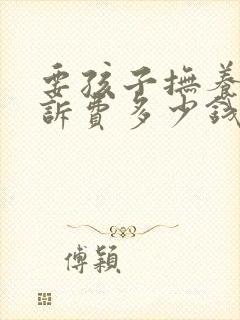 要孩子撫養
訴費多少錢
傅穎